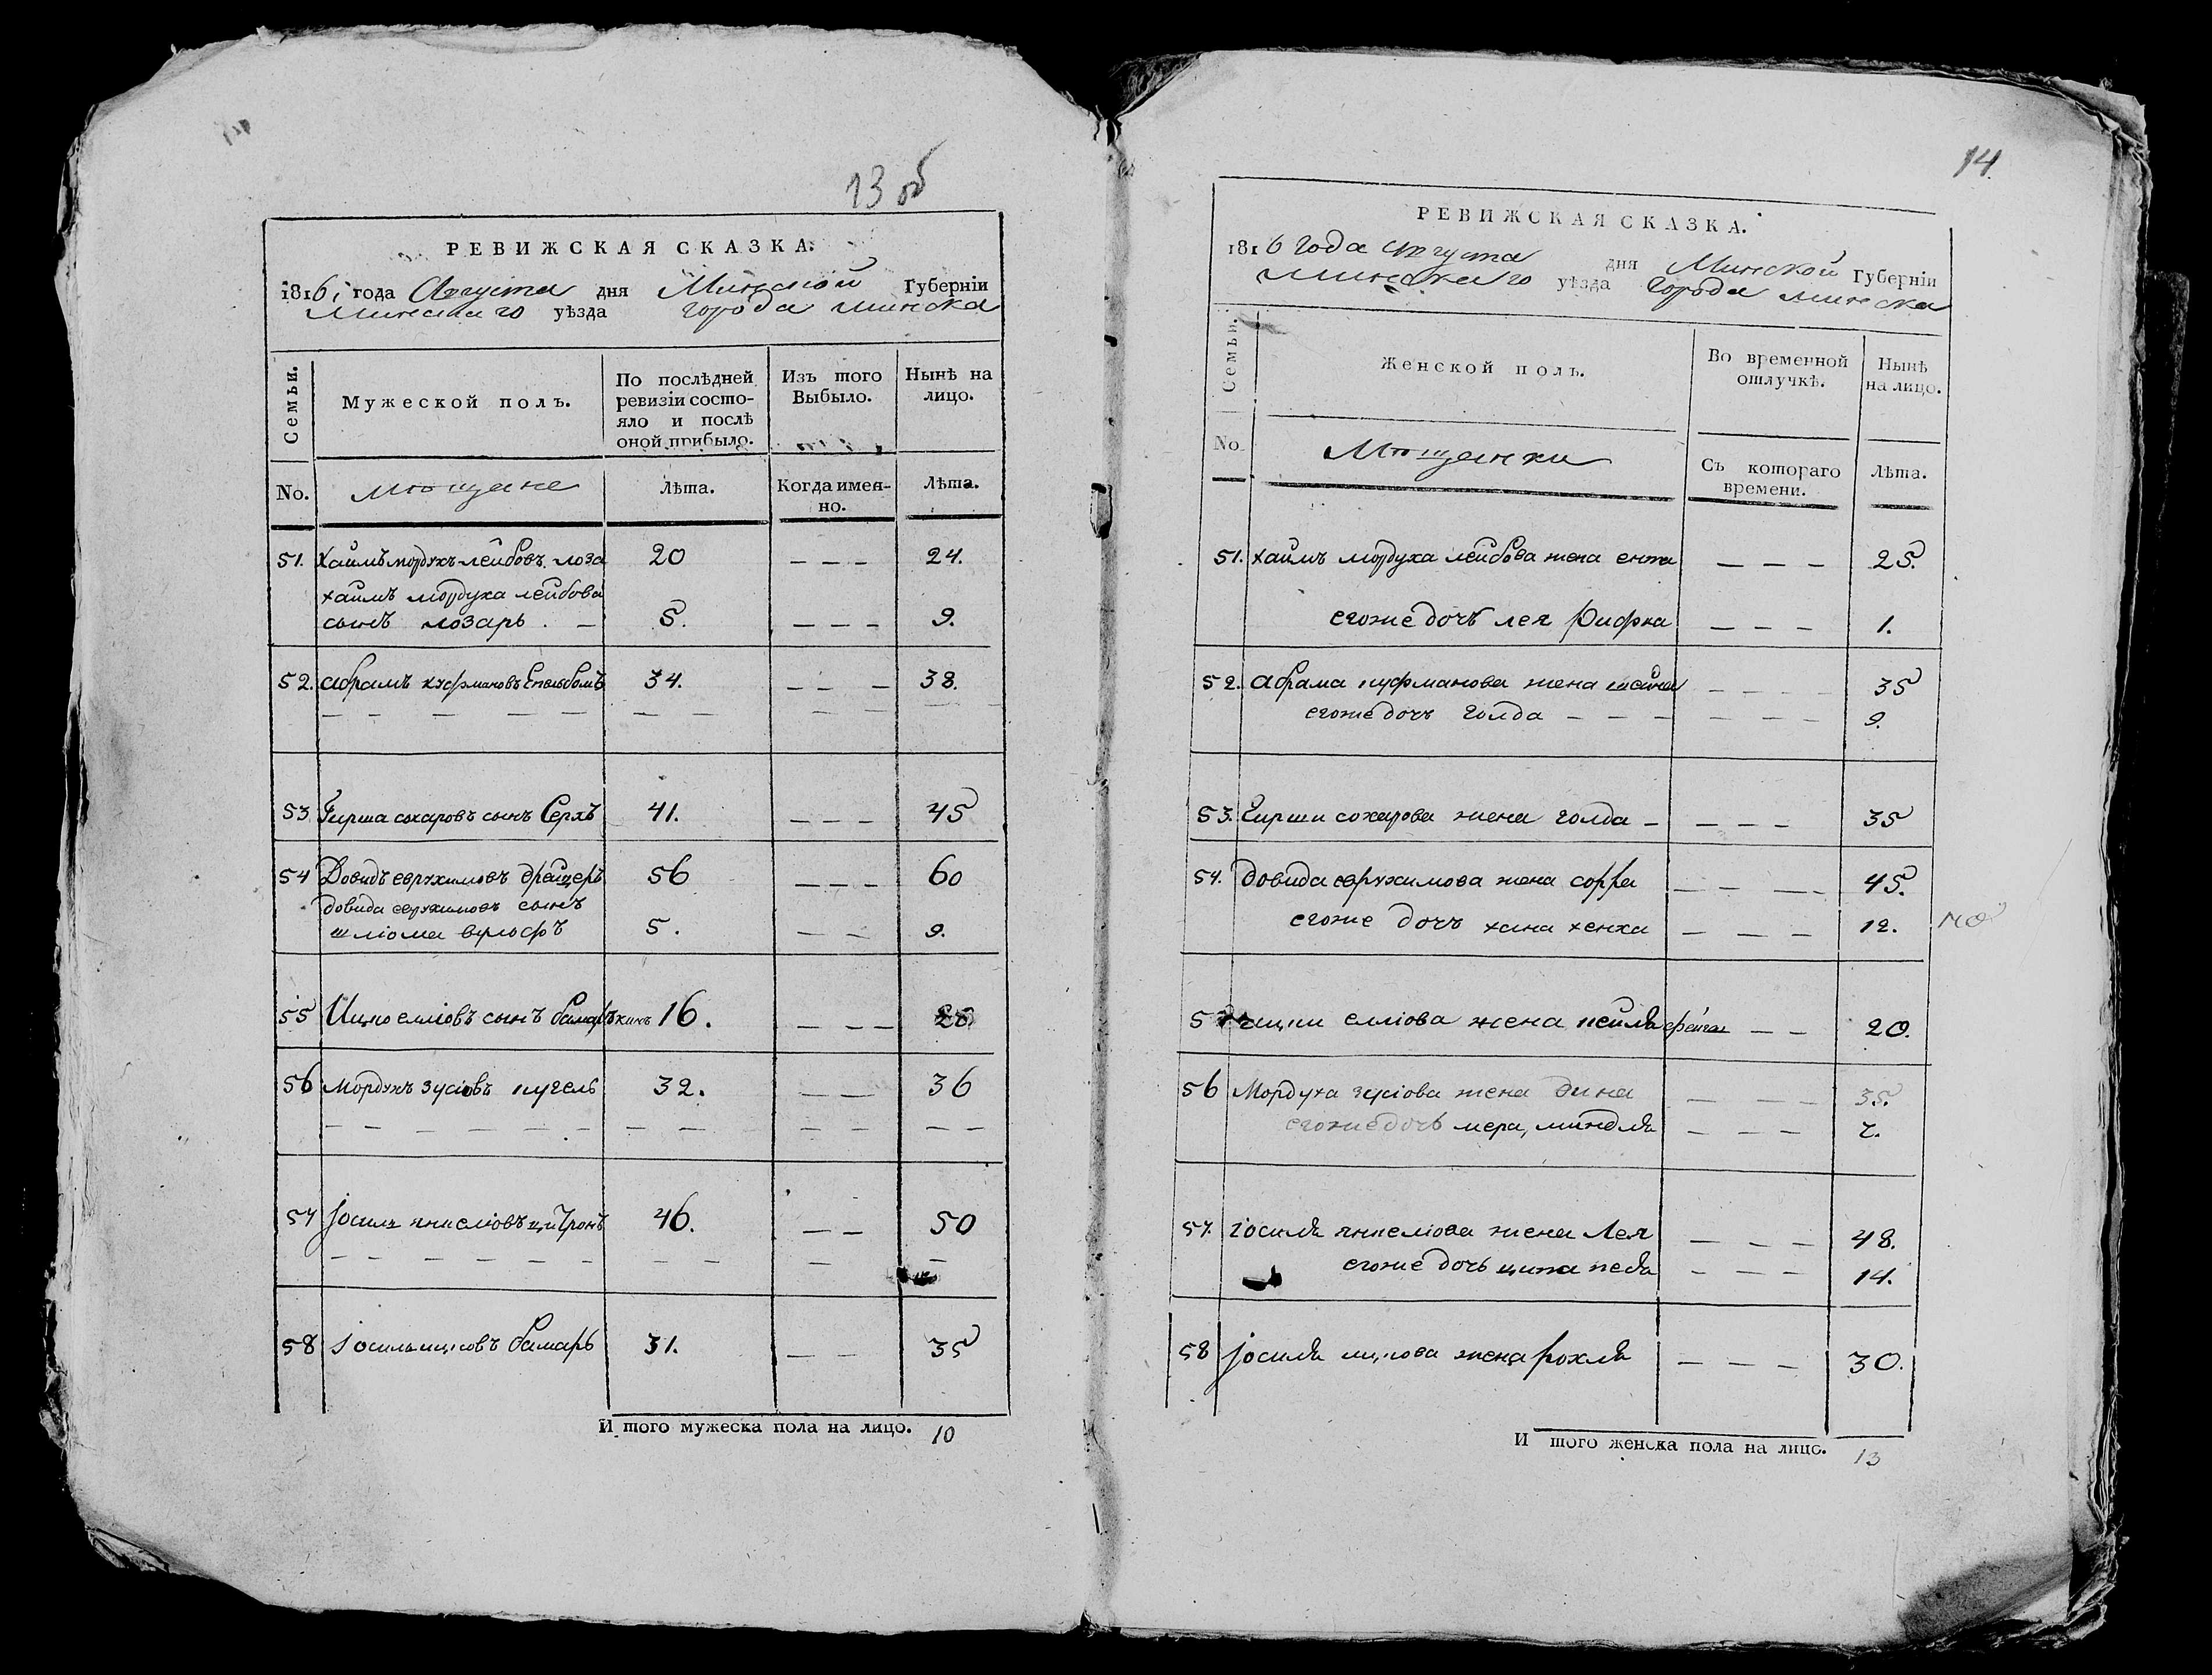 13 об
РЕВИЖСКАЯ СКАЗКА.
1816 года Августа дня Минской Губерніи
Минскаго уѣзда города минска
Семьи.
Мужеской полъ.
По послѣдней ревизіи состо-
яло и послѣ
оной прибыло.
Изъ того
Выбыло.
Нынѣ на
лицо.
No.
Мѣщане
лѣта.
Когда имен-
но.
Лѣта.
51. Хаимъ мордухъ лейбовъ лоза 20 — — — 24.
хаимъ мордуха лейбова
сынъ лозарь. — 5. — — — 9.
52. абрамъ 34. — — — 38.
53 Гирша сохаровъ сынъ Серхъ 41. — — — 45
54 Довидъ еврухимовъ 56 — — — 60
довида еврухимовъ сынъ
шліома вульфъ 5. — — 9.
55 Ицко елліовъ сынъ бамаръкинъ 16. — — — 20
56 Мордухъ зусіовъ кугель 32. — — 36
57 Јосиль янкеліовъ цитронъ 46. — — 50
58 Јосиль ицковъ бамаръ 31. — — 35
И того мужеска пола на лицо. 10
14
РЕВИЖСКАЯ СКАЗКА.
1816 года августа дня Минской Губерніи
Минскаго уѣзда города минска
Семьи.
Женской полъ.
Во временной
отлучкѣ.
Нынѣ
на лицо.
No.
Мѣщанки
Съ котораго
времени.
лѣта.
51. хаимъ мордуха лейбова жена ента — — — 25.
егоже дочъ лея рифка — — — 1.
52. абрама куфманова жена шейна — — — — 35
егоже дочъ голда — — — — — — — 9.
53. Гирши сохарова жена голда — — — — 35
54. довида еврухимова жена сорра — — — — 45.
егоже дочъ хана хенха — — — 12.
55 ицки елліова жена пейля фейга — — 20.
56 Мордуха зусіова жена дина — — — 35.
егоже дочь мера, миндля — — — 7.
57. іосиля янкеліова жена Лея — — — 48.
егоже дочь ципа песя — — — 14.
58 Јосиля ицкова жена рохля — — — 30.
И того женска пола на лицо. 13